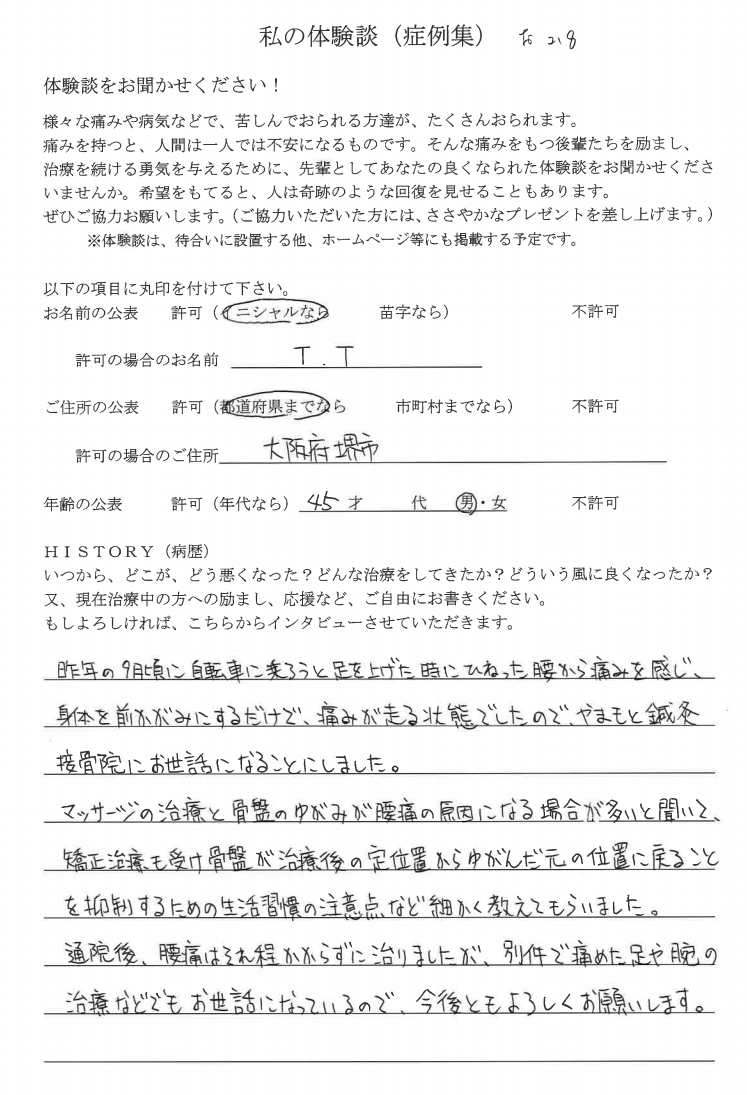 私の体験談（症例集）
体験談をお聞かせください！
様々な痛みや病気などで、苦しんでおられる方達が、たくさんおられます。
痛みを持つと、人間は一人では不安になるものです。そんな痛みをもつ後輩たちを励まし、
治療を続ける勇気を与えるために、先輩としてあなたの良くなられた体験談をお聞かせくださ
いませんか。希望をもてると、人は奇跡のような回復を見せることもあります。
ぜひご協力お願いします。（ご協力いただいた方には、ささやかなプレゼントを差し上げます。）
※体験談は、待合いに設置する他、ホームページ等にも掲載する予定です。
以下の項目に丸印を付けて下さい。
お名前の公表　許可（イニシャルなら　苗字なら）　不許可
許可の場合のお名前　T．T
ご住所の公表　許可（都道府県までなら　市町村までなら）　不許可
許可の場合のご住所　大阪府堺市
年齢の公表　許可（年代なら）　45才　代　男・女　不許可
ＨＩＳＴＯＲＹ（病歴）
いつから、どこが、どう悪くなった？どんな治療をしてきたか？どういう風に良くなったか？
又、現在治療中の方への励まし、応援など、ご自由にお書きください。
もしよろしければ、こちらからインタビューさせていただきます。
昨年の9月頃に自転車に乗ろうと足を上げた時にひねった腰から痛みを感じ、
身体を前かがみにするだけで、痛みが走る状態でしたので、やまもと鍼灸
接骨院にお世話になることにしました。
マッサージの治療と骨盤のゆがみが腰痛の原因になる場合が多いと聞いて、
矯正治療も受け骨盤が治療後の定位置からゆがんだ元の位置に戻ること
を抑制するための生活習慣の注意点など細かく教えてもらいました。
通院後、腰痛はそれ程かからずに治りましたが、別件で痛めた足や腕の
治療などでもお世話になっているので、今後ともよろしくお願いします。